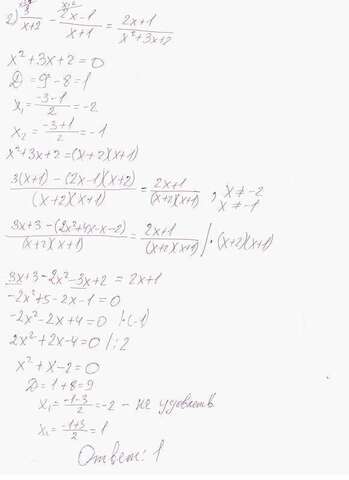 2) 3/(x+2) - (2x-1)/(x+1) = (2x+1)/(x²+3x+2)
x²+3x+2=0
D=9-8=1
x₁=(-3-1)/2=-2
x₂=(-3+1)/2=-1
x²+3x+2=(x+2)(x+1)
(3(x+1)-(2x-1)(x+2))/((x+2)(x+1)) = (2x+1)/((x+2)(x+1)), x≠-2
x≠-1
(3x+3-(2x²+4x-x-2))/((x+2)(x+1)) = (2x+1)/((x+2)(x+1)) |·(x+2)(x+1)
3x+3-2x²-3x+2=2x+1
-2x²+5-2x-1=0
-2x²-2x+4=0 |·(-1)
2x²+2x-4=0 |:2
x²+x-2=0
D=1+8=9
x₁=(-1-3)/2=-2 - не удовлетв.
x₂=(-1+3)/2=1
Ответ: 1